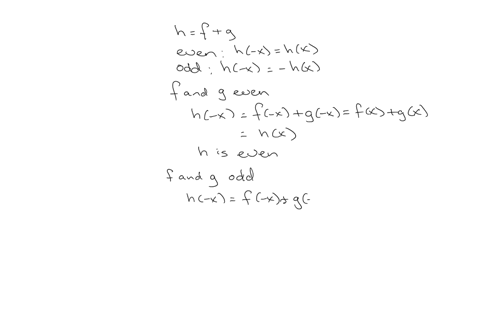 h = f + g
even : h(-x) = h(x)
odd : h(-x) = -h(x)
f and g even
h(-x) = f(-x) + g(-x) = f(x) + g(x)
= h(x)
h is even
f and g odd
h(-x) = f(-x) + g(-